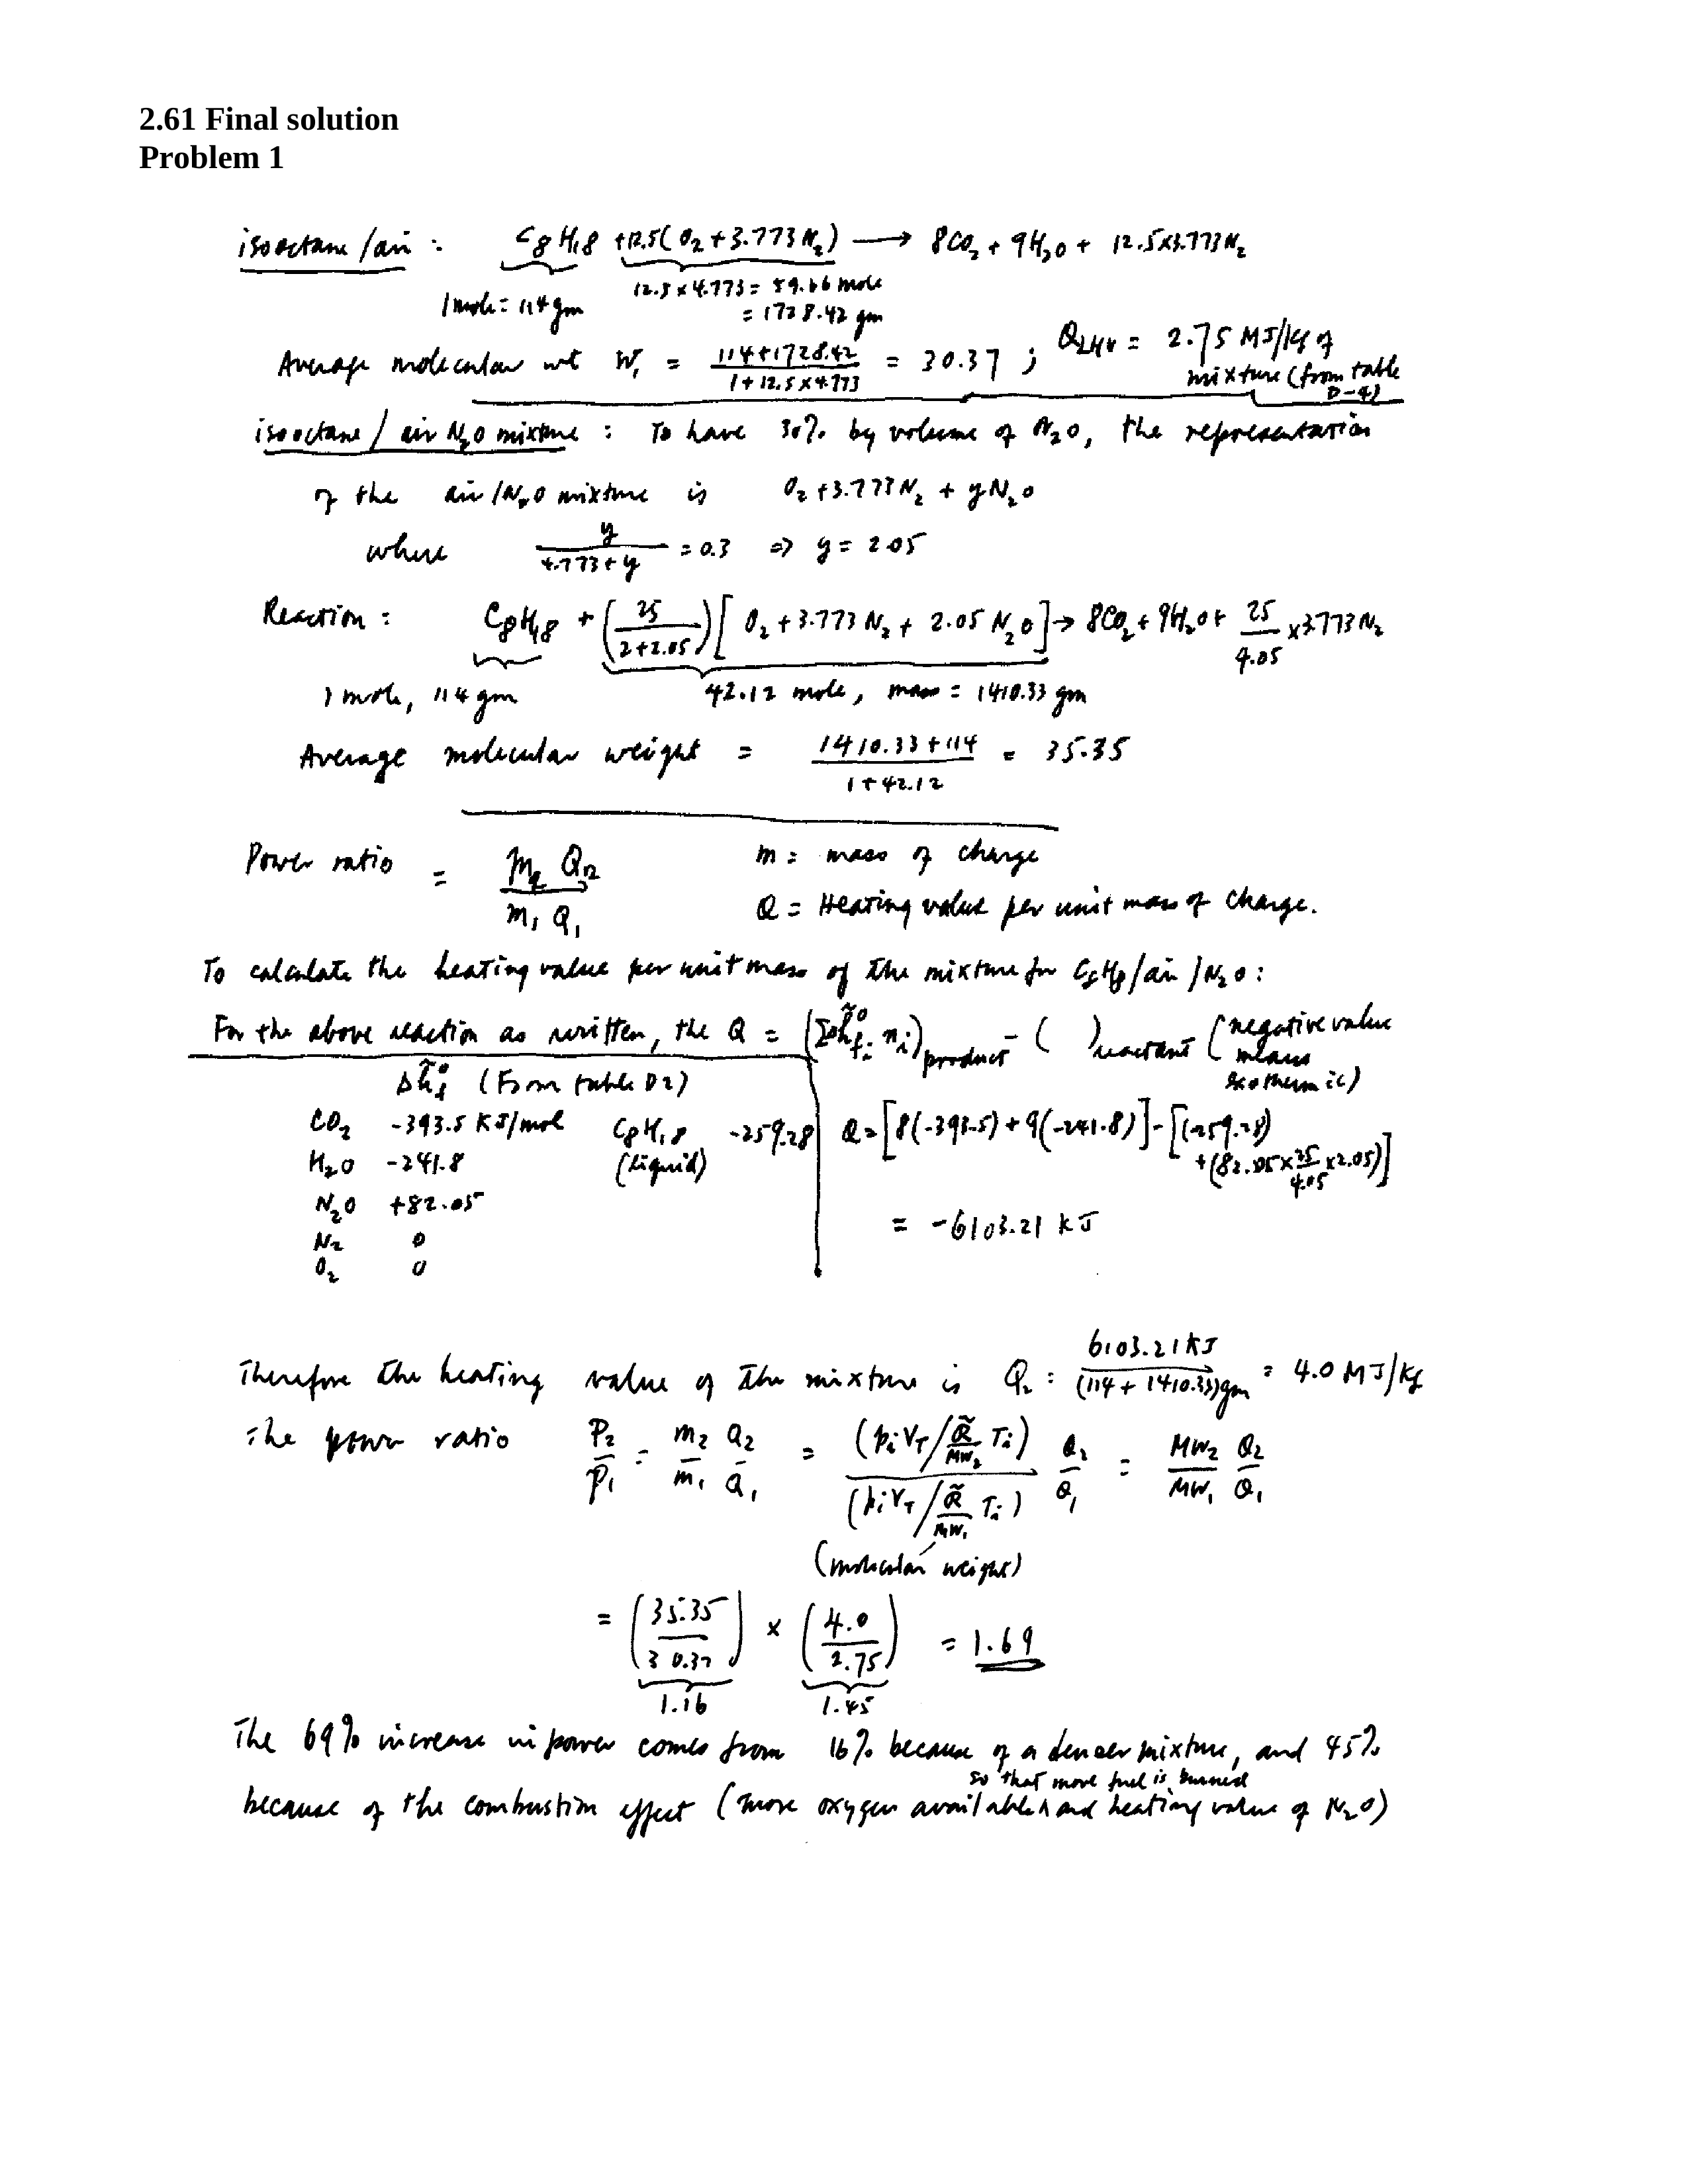 2.61 Final solution
Problem 1
isooctane/air : C8H18 + 12.5(O2 + 3.773 N2) → 8CO2 + 9H2O + 12.5x3.773N2
1 mole = 114 gm 12.5 x 4.773 = 59.66 mole
= 1728.42 gm
Average molecular wt W1 = (114+1728.42)/(1+12.5x4.773) = 30.37 ; QLHV = 2.75 MJ/kg of
mixture (from table
D-4)
isooctane / air N2O mixture : To have 30% by volume of N2O, the representation
of the air/N2O mixture is O2 + 3.773 N2 + y N2O
where y/(4.773+y) = 0.3 ⇒ y = 2.05
Reaction : C8H18 + (25/(2+2.05)) [O2 + 3.773 N2 + 2.05 N2O] → 8CO2 + 9H2O + 25/4.05 x 3.773 N2
1 mole, 114 gm 42.12 mole, mass = 1410.33 gm
Average molecular weight = (1410.33+114)/(1+42.12) = 35.35
Power ratio = m2 Q2 / m1 Q1 m = mass of charge
Q = Heating value per unit mass of charge.
To calculate the heating value per unit mass of the mixture for C8H8/air/N2O :
For the above reaction as written, the Q = (ΣΔh̃°f,i ni)product - ( )reactant (negative value
means
exothermic)
Δh̃°f (From table D2)
CO2 -393.5 KJ/mol C8H18 -259.28
(liquid)
H2O -241.8
N2O +82.05
N2 0
O2 0
Q = [8(-393.5) + 9(-241.8)] - [(-259.28)
+ (82.05 x 25/4.05 x 2.05)]
= -6103.21 KJ
Therefore the heating value of the mixture is Q2 = 6103.21 KJ / (114 + 1410.33) gm = 4.0 MJ/kg
The power ratio P2/P1 = m2/m1 Q2/Q1 = (pi VT / (R̃/MW2) Ti) / (pi VT / (R̃/MW1) Ti) Q2/Q1 = MW2/MW1 Q2/Q1
(molecular weight)
= (35.35/30.37) x (4.0/2.75) = 1.69
1.16 1.45
The 69% increase in power comes from 16% because of a denser mixture, and 45%
so that more fuel is burned
because of the combustion effect (more oxygen available ∧ and heating value of N2O)